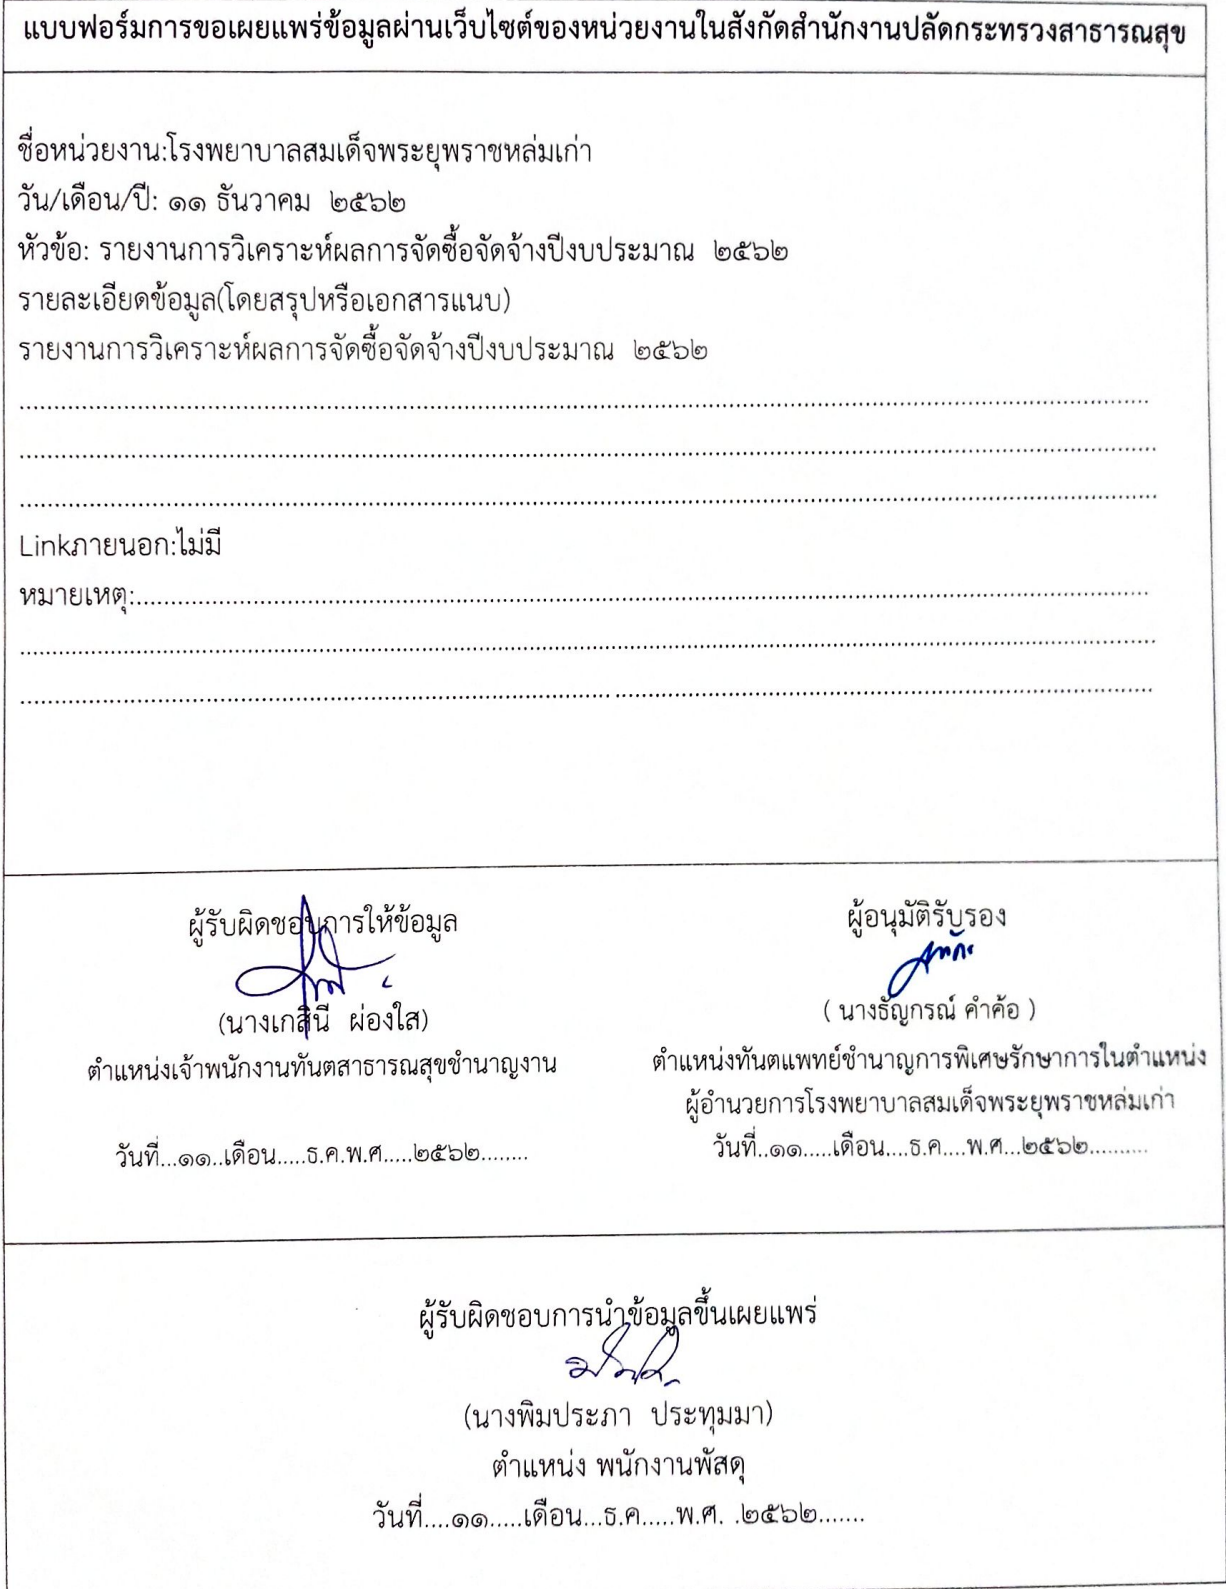 แบบฟอร์มการขอเผยแพร่ข้อมูลผ่านเว็บไซต์ของหน่วยงานในสังกัดสำนักงานปลัดกระทรวงสาธารณสุข
ชื่อหน่วยงาน:โรงพยาบาลสมเด็จพระยุพราชหล่มเก่า
วัน/เดือน/ปี: ๑๑ ธันวาคม ๒๕๖๒
หัวข้อ: รายงานการวิเคราะห์ผลการจัดซื้อจัดจ้างปีงบประมาณ ๒๕๖๒
รายละเอียดข้อมูล(โดยสรุปหรือเอกสารแนบ)
รายงานการวิเคราะห์ผลการจัดซื้อจัดจ้างปีงบประมาณ ๒๕๖๒
Linkภายนอก:ไม่มี
หมายเหตุ:
ผู้รับผิดชอบการให้ข้อมูล
(นางเกสินี ผ่องใส)
ตำแหน่งเจ้าพนักงานทันตสาธารณสุขชำนาญงาน
วันที่...๑๑..เดือน.....ธ.ค.พ.ศ.....๒๕๖๒........
ผู้อนุมัติรับรอง
( นางธัญกรณ์ คำค้อ )
ตำแหน่งทันตแพทย์ชำนาญการพิเศษรักษาการในตำแหน่ง
ผู้อำนวยการโรงพยาบาลสมเด็จพระยุพราชหล่มเก่า
วันที่..๑๑.....เดือน....ธ.ค....พ.ศ...๒๕๖๒..........
ผู้รับผิดชอบการนำข้อมูลขึ้นเผยแพร่
(นางพิมประภา ประทุมมา)
ตำแหน่ง พนักงานพัสดุ
วันที่....๑๑.....เดือน...ธ.ค.....พ.ศ. .๒๕๖๒.......